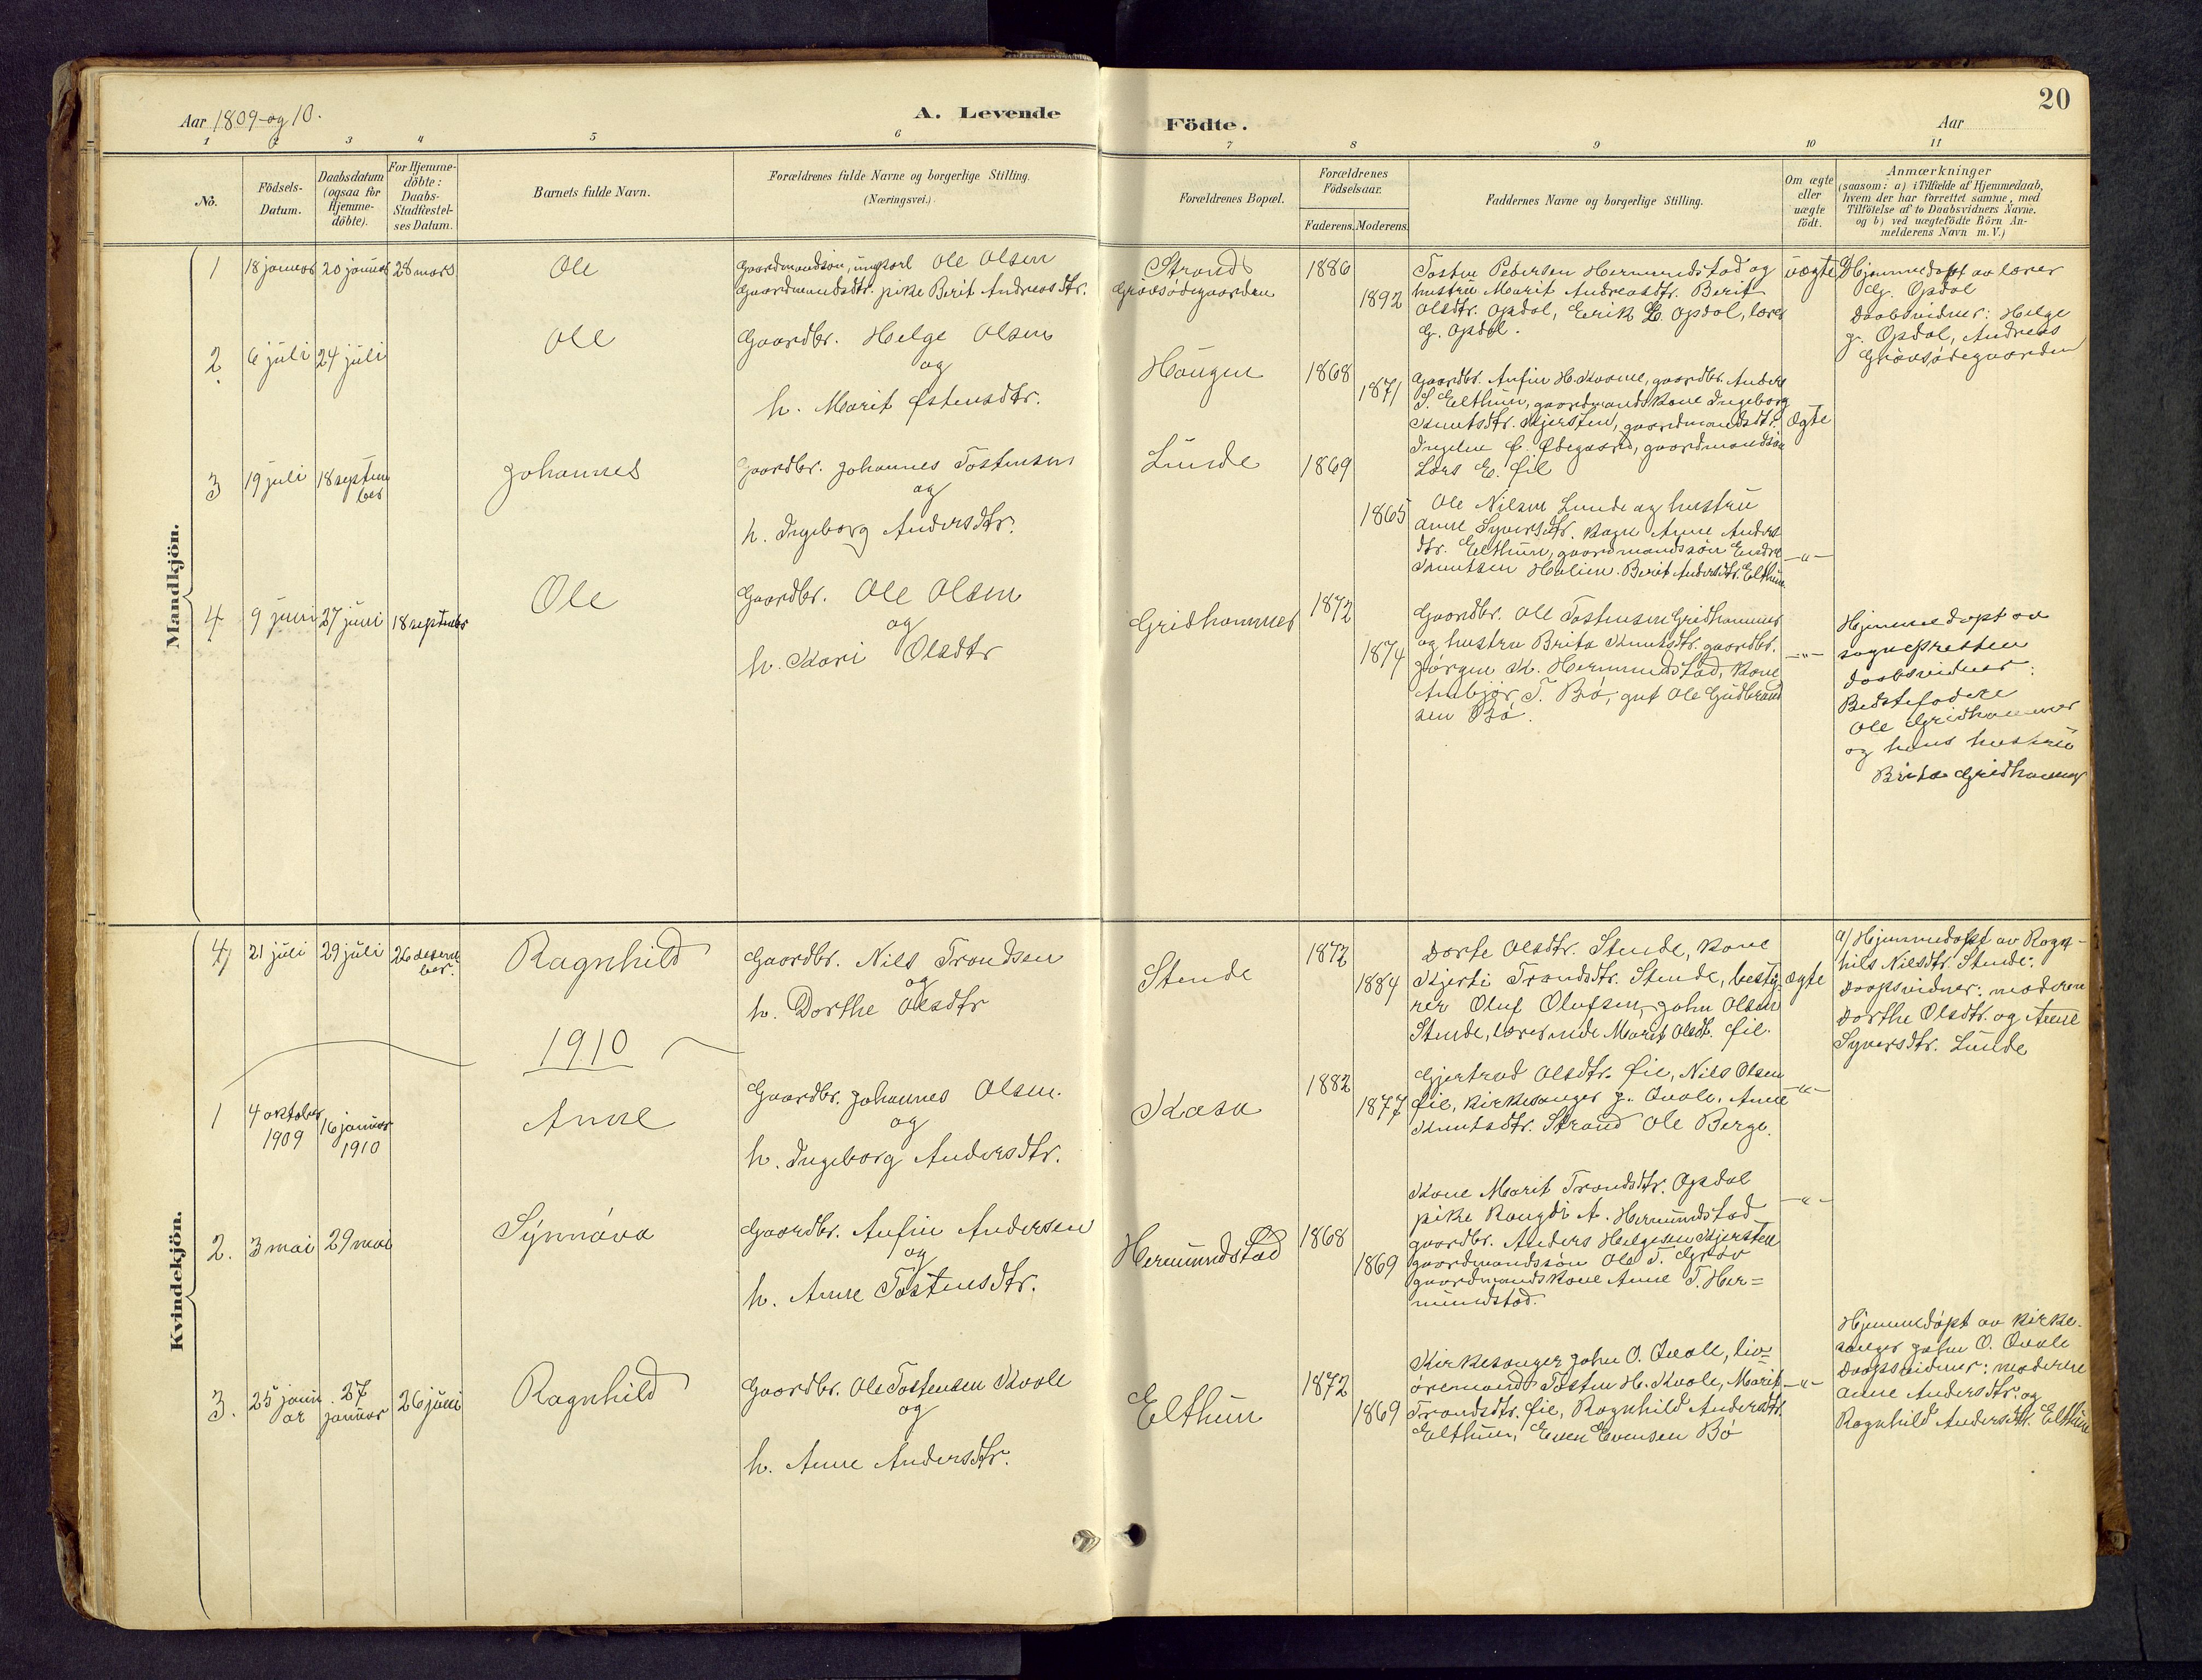 20
Aar 1809-og 10.
A. Levende
Födte.
Aar
1 2 3 4 5 6 7 8 9 10 11
No.
Födsels-
Datum.
Daabsdatum
(ogsaa for
Hjemme-
döbte).
For Hjemme-
döbte:
Daabs-
Stadfæstel-
ses Datum.
Barnets fulde Navn.
Forældrenes fulde Navne og borgerlige Stilling.
(Næringsvei.)
Forældrenes Bopæl.
Forældrenes
Födselsaar.
Faderens. Moderens.
Faddernes Navne og borgerlige Stilling.
Om ægte
eller
uægte
födt.
Anmærkninger
(saasom: a) i Tilfælde af Hjemmedaab,
hvem der har forrettet samme, med
Tilföielse af to Daabsvidners Navne.
og b) ved uægtefödte Börn An-
melderens Navn m. V.)
Mandkjön.
1
18 januar
20 januar
28 mars
Ole
Gaardmandsön, ungkarl Ole Olsen
Gaardmandsdtr. pike Berit Andreasdtr.
Strand
Grövsödegaarden
1886
1892
Tosten Pedersen Hermundstad og
hustru Marit Andreasdtr. Berit
Olsdtr. Opdal, Eerik E. Opdal, lærer
G. Opdal.
uægte
Hjemmedöpt av lærer
G. Opdal
Daabsvidner: Helge
g. Opdal, Andreas
Grövsödegaarden
2.
6 juli
24 juli
Ole
Gaardbr. Helge Olsen
og
h. Marit Østensdtr.
Haugen
1868
1871
Gaardbr. Anfin H. Kvame, gaardbr. Anders
S. Eelthun, gaardmandskone Ingeborg
Knutsdtr. Kjersten, gaardmandsdtr.
Ingelev E. Ødegaard, gaardmandsön
Lars E. Øie
Ægte
3
19 juli
18 septem
ber
Johannes
Gaardbr. Johannes Tostensen
og
h. Ingeborg Andersdtr.
Lunde
1869
1865
Ole Nilsen Lunde og hustru
Anne Syversdtr. Anne Anders
dtr. Eelthun, gaardmandsön Endre
Knutsen Berit Andersdtr. Elthun
-"-
4.
9 juni
27 juni
18 september
Ole
Gaardbr. Ole Olsen
og
h. Kari Olsdtr
Gridhammer
1872
1874
Gaardbr. Ole Tostensen Gridhammer
og hustru Brita Knutsdtr. gaardbr.
Jörgen K. Hermundstad, kone
Anbjør T. Bö, gut Ole Gudbrand
sen Bö.
-"-
Hjemmedöpt av
sognepresten
Daabsvidner:
Bedstefodere
Ole Gridhammer
og hans hustru
Brita Gridhammer
Kvindekjön.
4
21 juli
29 juli
26 desem
ber.
Ragnhild
Gaardbr. Nils Trondsen
og
h. Dorthe Olsdtr
Stende
1872
1884
Dorte Olsdtr. Stende, kone
Kjersti Trondsdtr. Stende, besty-
rer Oluf Olufsen, John Olsen
Stende, lærerinde Marit Olsdt. Øie.
ægte
a/ Hjemmedöpt av Ragn-
hild Nilsdtr. Stende.
Daapsvidner: moderen
Dorthe Olsdtr. og Anne
Syversdtr. Lunde
1910
1
4 oktober
1909
16 januar
1910
Anne
Gaardbr. Johannes Olsen.
og
h. Ingeborg Andersdtr.
Kasa
1882
1877
Gjertrud Olsdtr. Øie, Nils Olsen
Øie, kirkesanger J. Qvale, Anne
Knutsdtr. Strand Ole Berge.
-"-
2.
3 mai
29 mai
Synnöva
Gaardbr. Anfin Andersen
og
h. Anne Tostensdtr.
Hermundstad
1868
1869
Kone Marit Trondsdtr. Opdal
pike Rangdi A. Hermundstad
gaardbr. Anders Helgesen Kjersten
gaardmandsön Ole T. Gröv
gaardmandskone Anne T. Her=
mundstad.
-"-
3.
25 janu
ar
27
januar
26 juni
Ragnhild
Gaardbr. Ole Tostensen Kvale
og
h. Anne Andersdtr.
Elthun
1872
1869
Kirkesanger John O. Qvale, liv=
öremand Tosten H. Kvale, Marit
Trondsdtr. Øie, Ragnhild Andersdtr.
Elthun, Even Evensen Bö
-"-
Hjemmedöpt av kirke-
sanger John O. Qvale
Daapsvidner: moderen
Anne Andersdtr. og
Ragnhild Andersdtr. Elthun